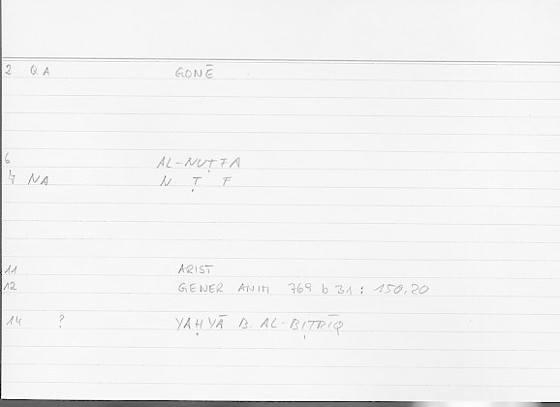 2 QA GONĒ
6 AL-NUṬFA
7 NA N Ṭ F
11 ARIST
12 GENER ANIM 769 b 31 : 150,20
14 ? YAḤYĀ B. AL-BIṬRĪQ